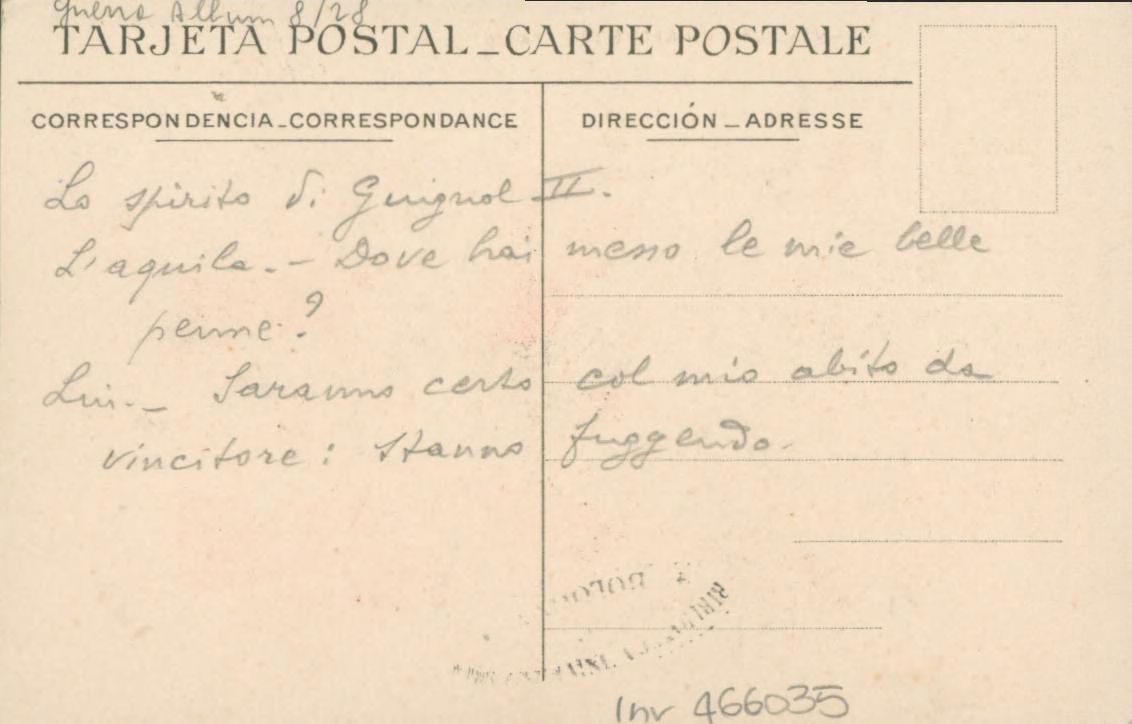 Guerra Album 8/28
TARJETA POSTAL_CARTE POSTALE
CORRESPONDENCIA_CORRESPONDANCE
DIRECCIÓN_ADRESSE
Lo spirito di Guignol II.
L'aquila.- Dove hai messo le mie belle
penne?
Lui.- Saranno certo col mio abito da
vincitore: stanno fuggendo.
Inv 466035